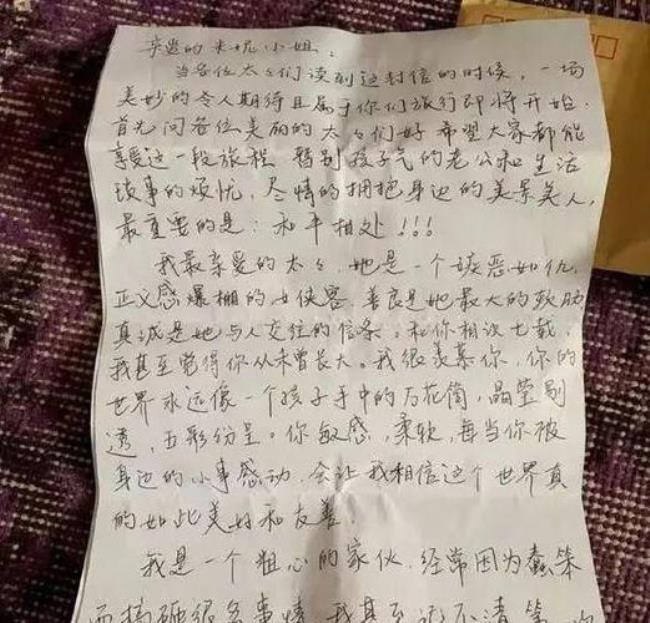 亲爱的米妮小姐:
当各位太太们读到这封信的时候,一场
美妙的令人期待且属于你们旅行即将开始.
首先问各位美丽的太太们好 希望大家都能
享受这一段旅程 暂别孩子气的老公和生活
琐事的烦忧,尽情的拥抱身边的美景美人,
最重要的是:和平相处!!!
我最亲爱的太太,她是一个嫉恶如仇,
正义感爆棚的女侠客,善良是她最大的软肋
真诚是她与人交往的信条。和你相识七载,
我甚至觉得你从未曾长大。我很羡慕你,你的
世界永远像一个孩子手中的万花筒,晶莹剔
透,五彩纷呈。你敏感,柔软,每当你被
身边的小事感动,会让我相信这个世界真
的如此美好和友善.
我是一个粗心的家伙,经常因为蠢笨
而搞砸很多事情,我甚至记不清第一次